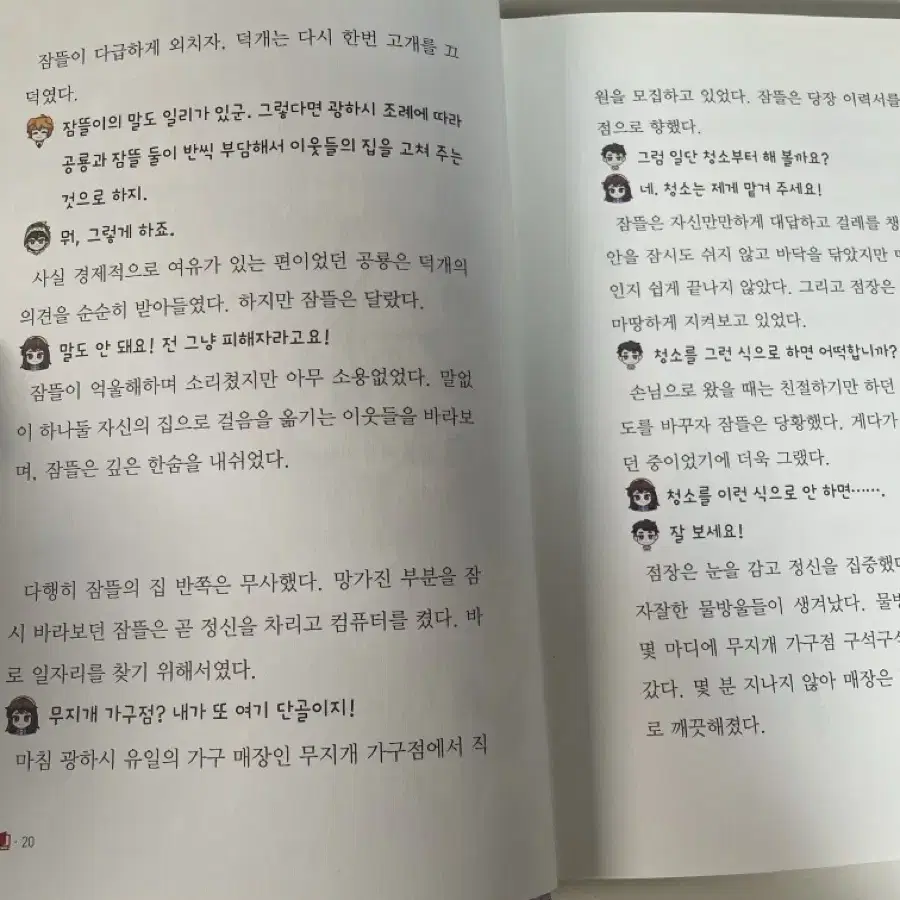 잠뜰이 다급하게 외치자. 덕개는 다시 한번 고개를 끄
덕였다.
잠뜰이의 말도 일리가 있군. 그렇다면 광하시 조례에 따라
공룡과 잠뜰 둘이 반씩 부담해서 이웃들의 집을 고쳐 주는
것으로 하지.
뭐, 그렇게 하죠.
사실 경제적으로 여유가 있는 편이었던 공룡은 덕개의
의견을 순순히 받아들였다. 하지만 잠뜰은 달랐다.
말도 안 돼요! 전 그냥 피해자라고요!
잠뜰이 억울해하며 소리쳤지만 아무 소용없었다. 말없
이 하나둘 자신의 집으로 걸음을 옮기는 이웃들을 바라보
며, 잠뜰은 깊은 한숨을 내쉬었다.
다행히 잠뜰의 집 반쪽은 무사했다. 망가진 부분을 잠
시 바라보던 잠뜰은 곧 정신을 차리고 컴퓨터를 켰다. 바
로 일자리를 찾기 위해서였다.
무지개 가구점? 내가 또 여기 단골이지!
마침 광하시 유일의 가구 매장인 무지개 가구점에서 직
· 20
원을 모집하고 있었다. 잠뜰은 당장 이력서를
점으로 향했다.
그럼 일단 청소부터 해 볼까요?
네. 청소는 제게 맡겨 주세요!
잠뜰은 자신만만하게 대답하고 걸레를 챙
안을 잠시도 쉬지 않고 바닥을 닦았지만
인지 쉽게 끝나지 않았다. 그리고 점장은
마땅하게 지켜보고 있었다.
청소를 그런 식으로 하면 어떡합니까?
손님으로 왔을 때는 친절하기만 하던
도를 바꾸자 잠뜰은 당황했다. 게다가
던 중이었기에 더욱 그랬다.
청소를 이런 식으로 안 하면…….
잘 보세요!
점장은 눈을 감고 정신을 집중했다
자잘한 물방울들이 생겨났다. 물방
몇 마디에 무지개 가구점 구석구석
갔다. 몇 분 지나지 않아 매장은
로 깨끗해졌다.